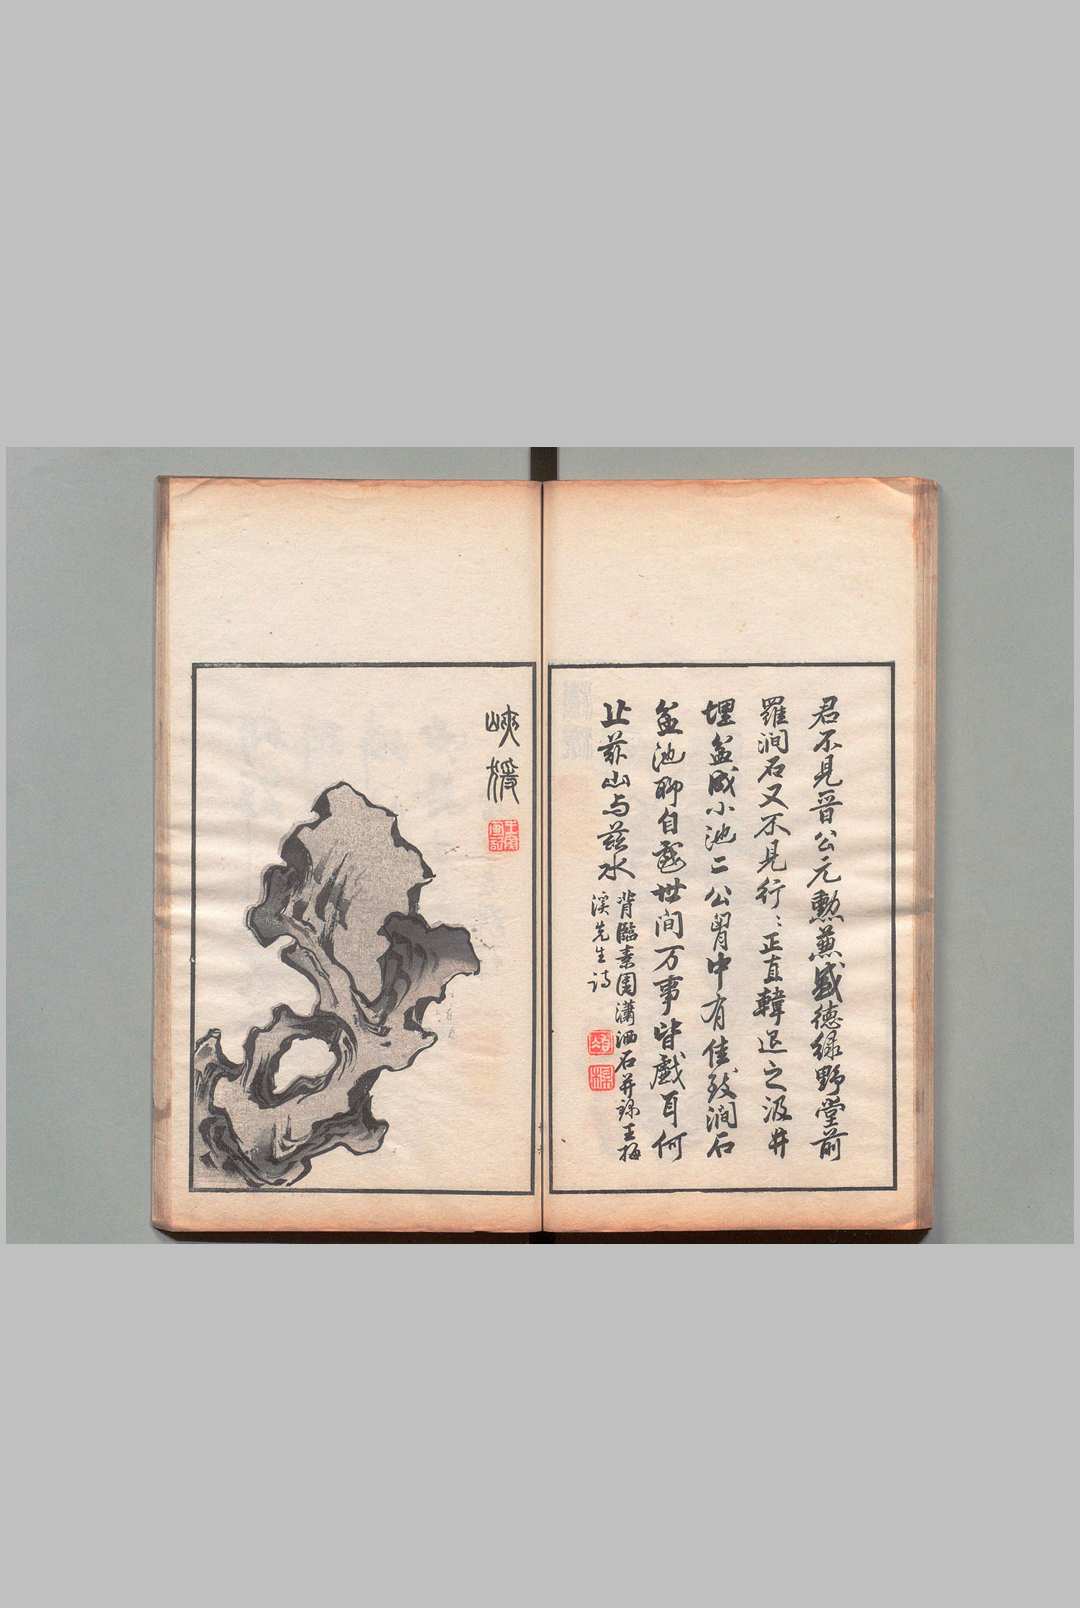 君不見晉公元勳蓋盛德綠野堂前
羅澗石又不見行〻正直韓退之汲井
埋盆成小池二公胷中有佳致澗石
盆池聊自戲世間万事皆戲耳何
止茲山与茲水
背臨素園瀟洒石并錄王梅
溪先生詩
峽媛